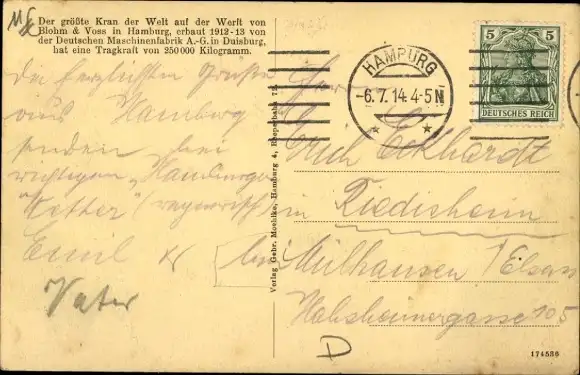 Der größte Kran der Welt auf der Werft von
Blohm & Voss in Hamburg, erbaut 1912-13 von
der Deutschen Maschinenfabrik A.-G. in Duisburg,
hat eine Tragkraft von 250000 Kilogramm.
Die herzlichsten Grüße
aus Hamburg
senden bei
richtigem "Hamburger
Wetter" (regnerisch)
Emil &
Vater
Verlag Gebr. Moehlke, Hamburg 4, Reeperbahn
HAMBURG
-6.7.14.4-5N
5 5
DEUTSCHES REICH
Herrn
Erich Eckhardt
in Riedisheim
bei Mülhausen i/Elsass
Habsheimergasse 105
D
174536